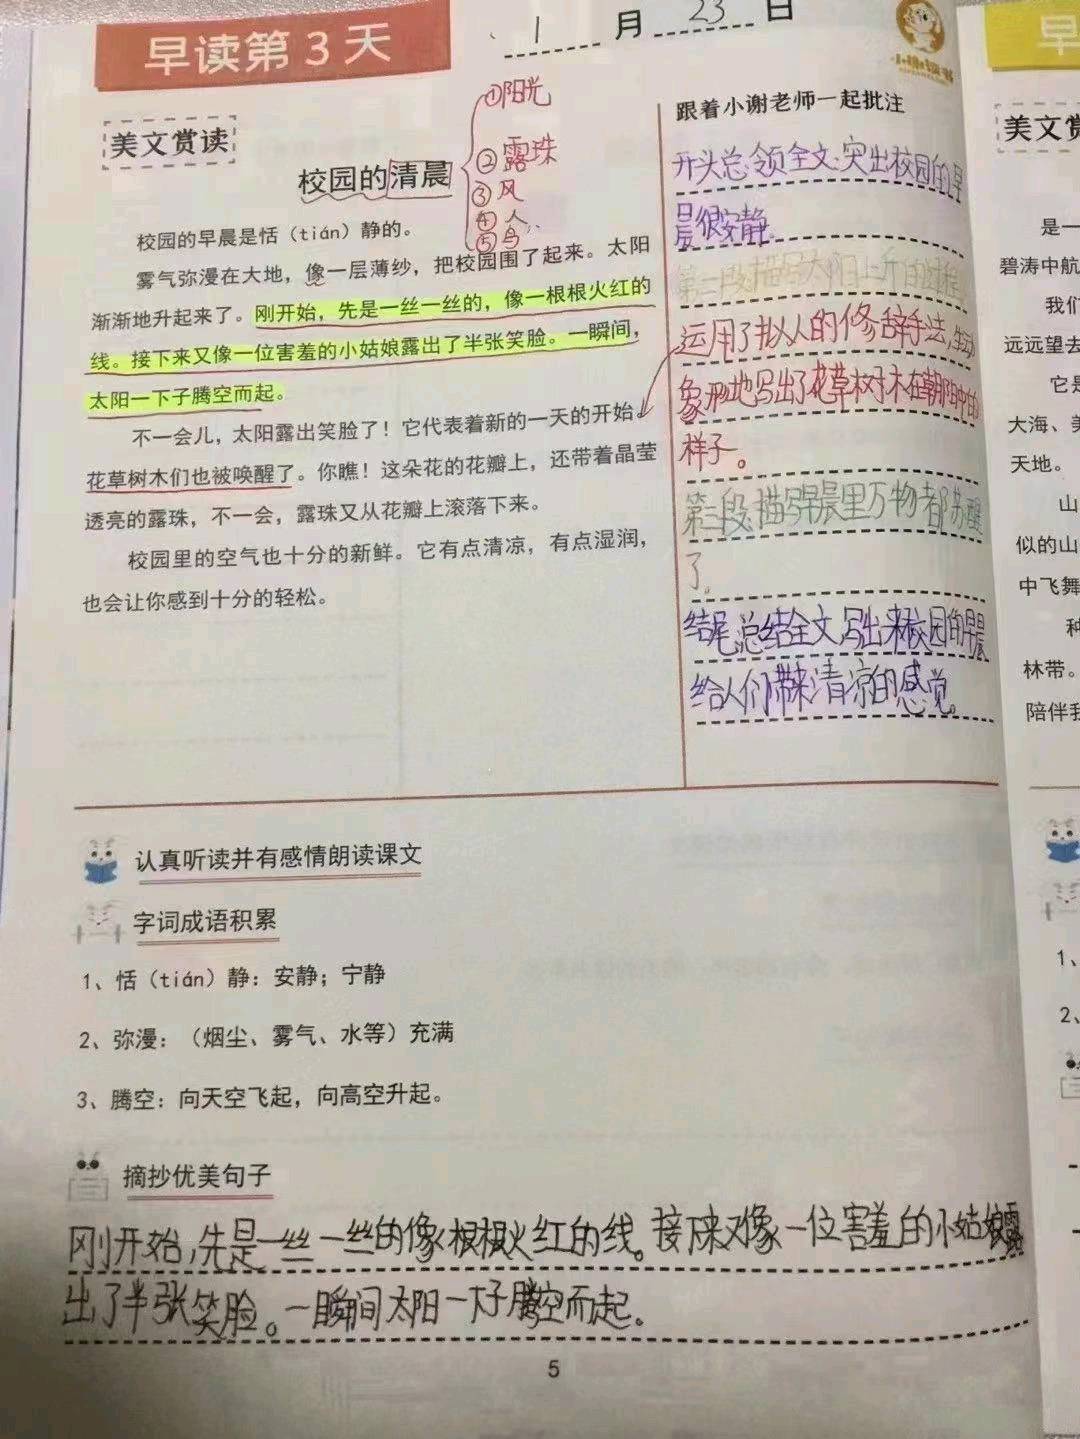 早读第3天
1月23日
早
美文赏读
校园的清晨
①阳光
②露珠
③风
④人
⑤鸟
校园的早晨是恬（tián）静的。
雾气弥漫在大地，像一层薄纱，把校园围了起来。太阳
渐渐地升起来了。刚开始，先是一丝一丝的，像一根根火红的
线。接下来又像一位害羞的小姑娘露出了半张笑脸。一瞬间，
太阳一下子腾空而起。
不一会儿，太阳露出笑脸了！它代表着新的一天的开始。
花草树木们也被唤醒了。你瞧！这朵花的花瓣上，还带着晶莹
透亮的露珠，不一会，露珠又从花瓣上滚落下来。
校园里的空气也十分的新鲜。它有点清凉，有点湿润，
也会让你感到十分的轻松。
跟着小谢老师一起批注
开头总领全文：突出校园的早
晨很安静。
第二段：描写太阳上升的过程。
运用了拟人的修辞手法，生动
象形地写出了花草树木在朝阳中的
样子。
第三段：描写早晨里万物都苏醒
了。
结尾总结全文，写出来校园的早晨
给人们带来清凉的感觉。
认真听读并有感情朗读课文
字词成语积累
1、恬（tián）静：安静；宁静
2、弥漫：（烟尘、雾气、水等）充满
3、腾空：向天空飞起，向高空升起。
摘抄优美句子
刚开始，先是一丝一丝的像根根火红的线。接下来又像一位害羞的小姑娘露
出了半张笑脸。一瞬间太阳一下子腾空而起。
5
美文赏
是一
碧涛中航
我们
远远望去
它是
大海、美
天地。
山
似的山
中飞舞
种
林带。
陪伴我
1、
2、